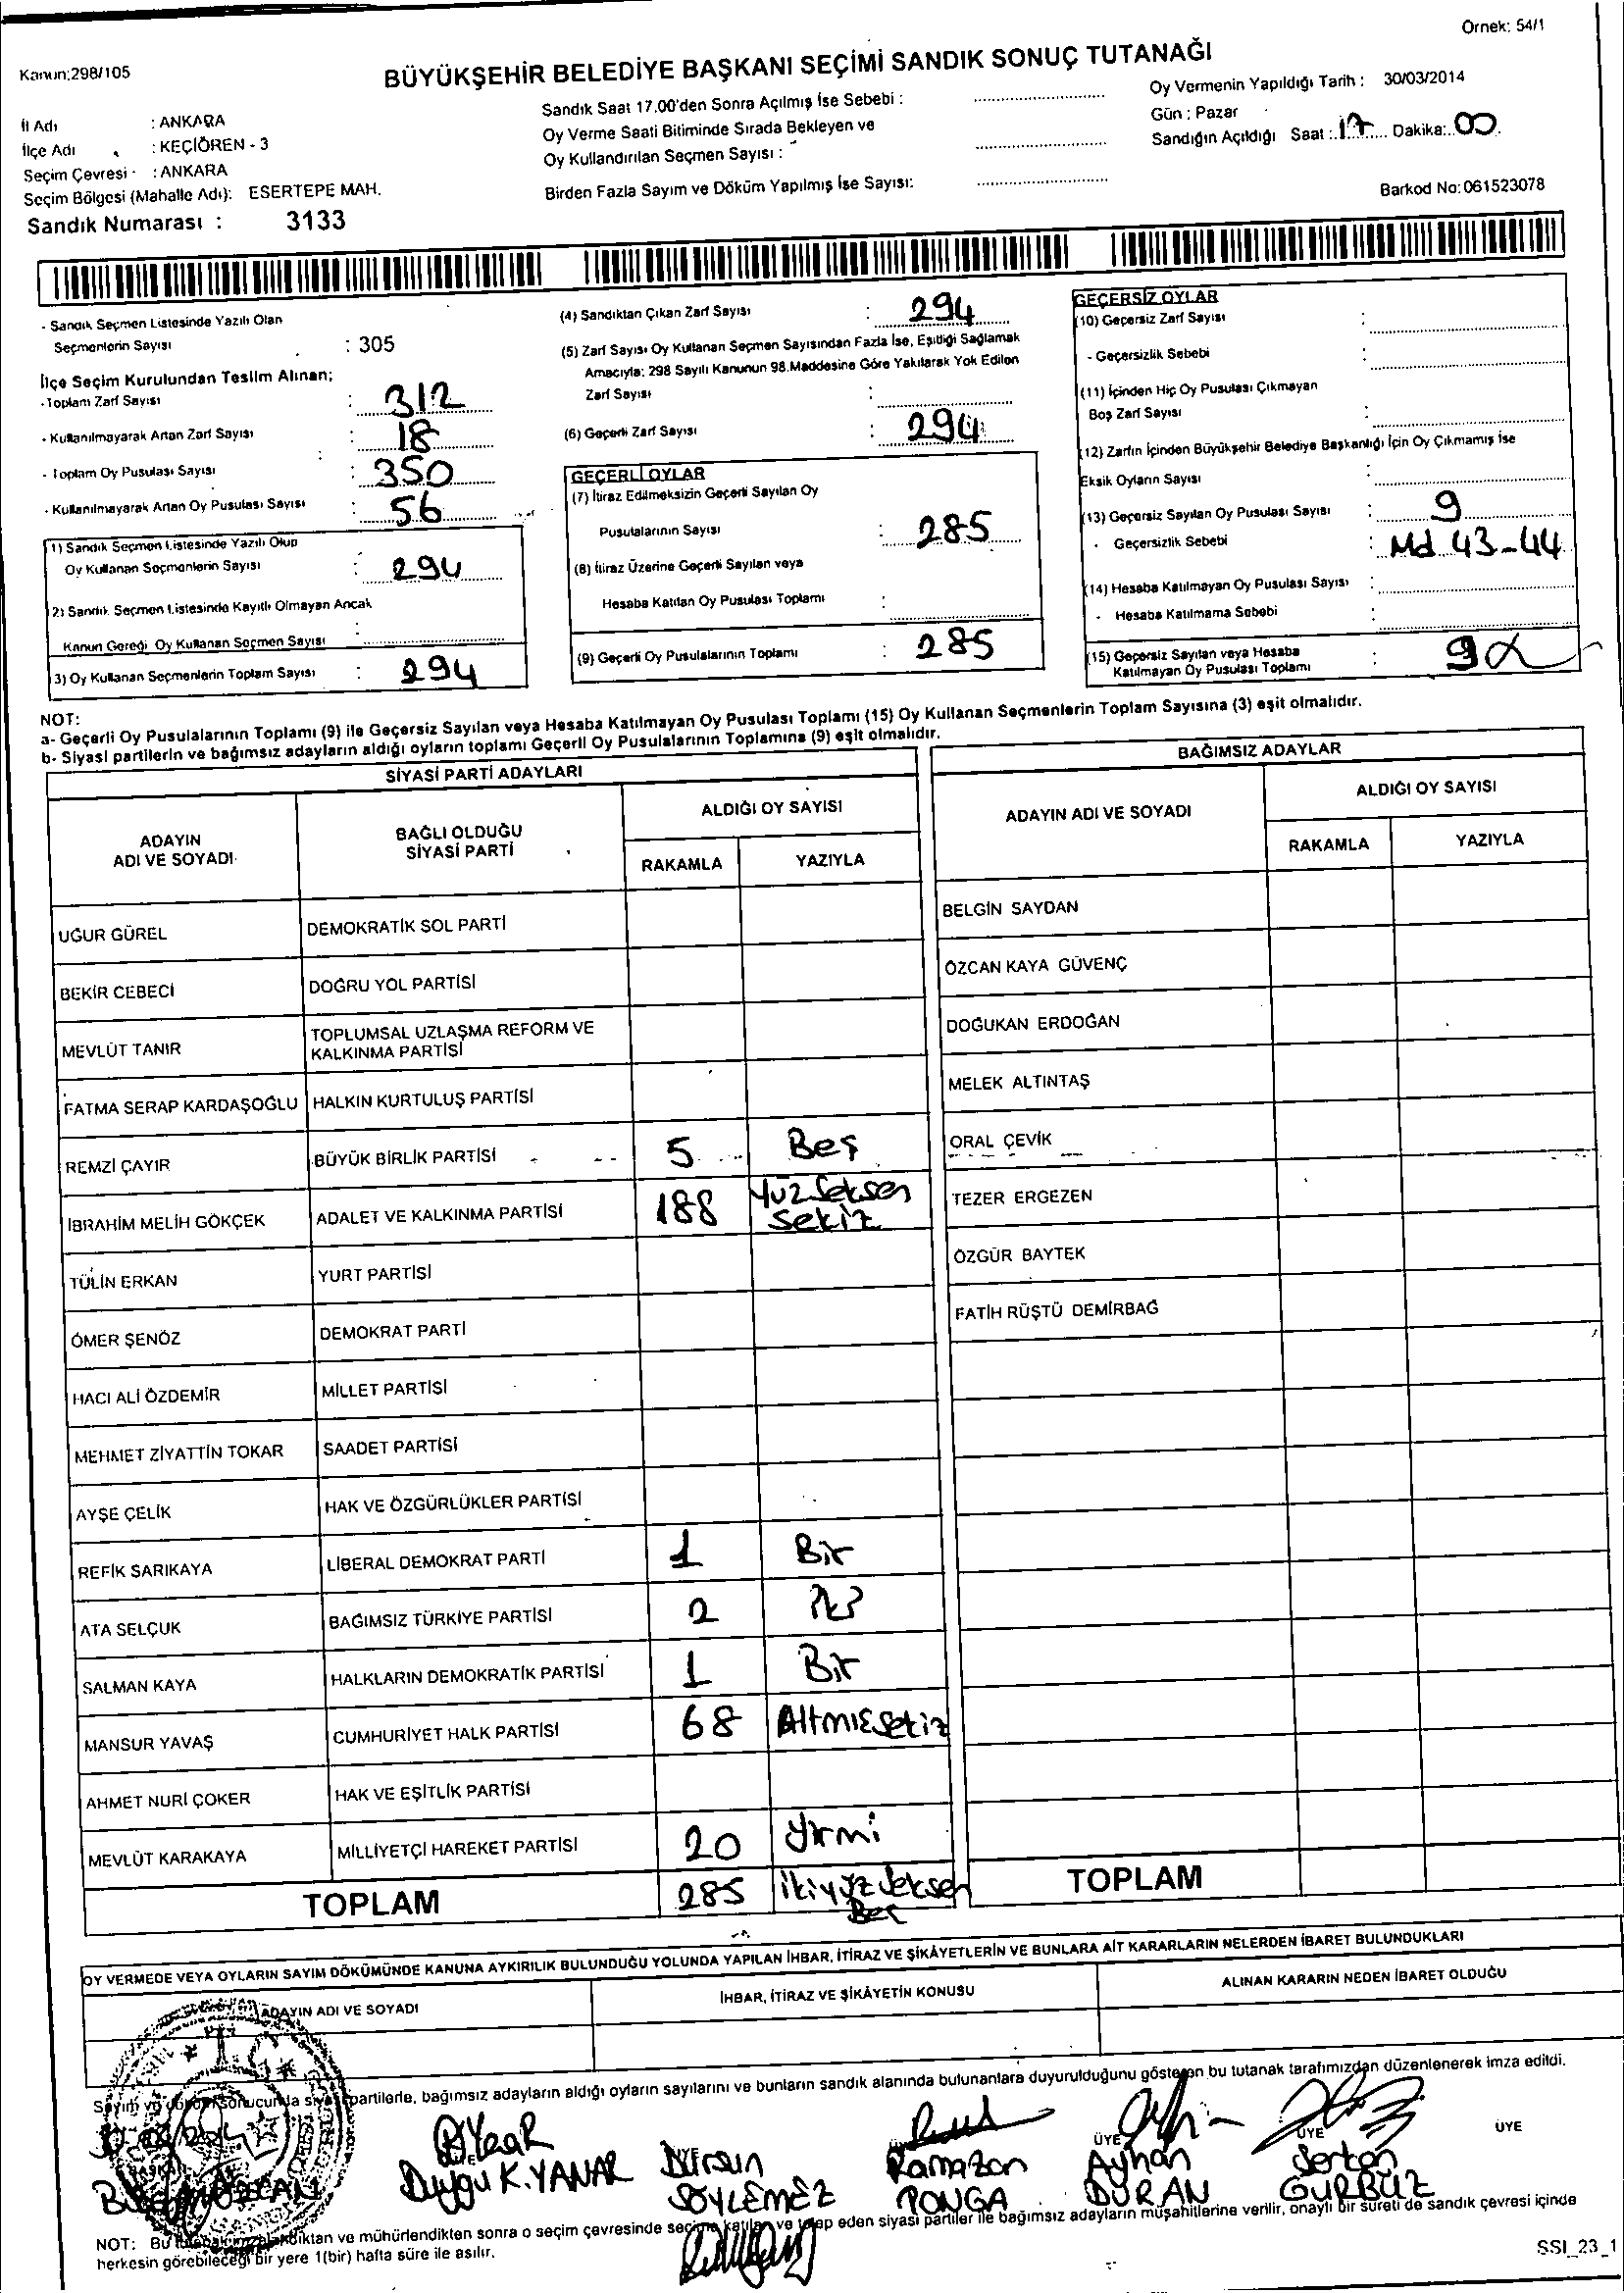 Örnek: 54/1
Kanun:298/105
BÜYÜKŞEHİR BELEDİYE BAŞKANI SEÇİMİ SANDIK SONUÇ TUTANAĞI
İl Adı : ANKARA
İlçe Adı : KEÇİÖREN - 3
Seçim Çevresi : ANKARA
Seçim Bölgesi (Mahalle Adı): ESERTEPE MAH.
Sandık Numarası : 3133
Sandık Saat 17.00'den Sonra Açılmış İse Sebebi :
Oy Verme Saati Bitiminde Sırada Bekleyen ve
Oy Kullandırılan Seçmen Sayısı :
Birden Fazla Sayım ve Döküm Yapılmış İse Sayısı:
Oy Vermenin Yapıldığı Tarih : 30/03/2014
Gün : Pazar
Sandığın Açıldığı Saat : 17 Dakika: 00
Barkod No: 061523078
- Sandık Seçmen Listesinde Yazılı Olan
Seçmenlerin Sayısı : 305
İlçe Seçim Kurulundan Teslim Alınan;
- Toplam Zarf Sayısı : 312
- Kullanılmayarak Artan Zarf Sayısı : 18
- Toplam Oy Pusulası Sayısı : 350
- Kullanılmayarak Artan Oy Pusulası Sayısı : 56
1) Sandık Seçmen Listesinde Yazılı Olup
Oy Kullanan Seçmenlerin Sayısı : 294
2) Sandık Seçmen Listesinde Kayıtlı Olmayan Ancak
Kanun Gereği Oy Kullanan Seçmen Sayısı :
3) Oy Kullanan Seçmenlerin Toplam Sayısı : 294
(4) Sandıktan Çıkan Zarf Sayısı : 294
(5) Zarf Sayısı Oy Kullanan Seçmen Sayısından Fazla İse, Eşitliği Sağlamak
Amacıyla: 298 Sayılı Kanunun 98.Maddesine Göre Yakılarak Yok Edilen
Zarf Sayısı :
(6) Geçerli Zarf Sayısı : 294
GEÇERLİ OYLAR
(7) İtiraz Edilmeksizin Geçerli Sayılan Oy
Pusulalarının Sayısı : 285
(8) İtiraz Üzerine Geçerli Sayılan veya
Hesaba Katılan Oy Pusulası Toplamı :
(9) Geçerli Oy Pusulalarının Toplamı : 285
GEÇERSİZ OYLAR
(10) Geçersiz Zarf Sayısı :
- Geçersizlik Sebebi :
(11) İçinden Hiç Oy Pusulası Çıkmayan
Boş Zarf Sayısı :
(12) Zarfın İçinden Büyükşehir Belediye Başkanlığı İçin Oy Çıkmamış İse
Eksik Oyların Sayısı :
(13) Geçersiz Sayılan Oy Pusulası Sayısı : 9
- Geçersizlik Sebebi : Md 43-44
(14) Hesaba Katılmayan Oy Pusulası Sayısı :
- Hesaba Katılmama Sebebi :
(15) Geçersiz Sayılan veya Hesaba
Katılmayan Oy Pusulası Toplamı : 9
NOT:
a- Geçerli Oy Pusulalarının Toplamı (9) ile Geçersiz Sayılan veya Hesaba Katılmayan Oy Pusulası Toplamı (15) Oy Kullanan Seçmenlerin Toplam Sayısına (3) eşit olmalıdır.
b- Siyasi partilerin ve bağımsız adayların aldığı oyların toplamı Geçerli Oy Pusulalarının Toplamına (9) eşit olmalıdır.
SİYASİ PARTİ ADAYLARI
ADAYIN
ADI VE SOYADI
BAĞLI OLDUĞU
SİYASİ PARTİ
ALDIĞI OY SAYISI
RAKAMLA YAZIYLA
UĞUR GÜREL DEMOKRATİK SOL PARTİ
BEKİR CEBECİ DOĞRU YOL PARTİSİ
MEVLÜT TANIR TOPLUMSAL UZLAŞMA REFORM VE
KALKINMA PARTİSİ
FATMA SERAP KARDAŞOĞLU HALKIN KURTULUŞ PARTİSİ
REMZİ ÇAYIR BÜYÜK BİRLİK PARTİSİ 5 Beş
İBRAHİM MELİH GÖKÇEK ADALET VE KALKINMA PARTİSİ 188 Yüz Seksen
Sekiz
TÜLİN ERKAN YURT PARTİSİ
ÖMER ŞENÖZ DEMOKRAT PARTİ
HACI ALİ ÖZDEMİR MİLLET PARTİSİ
MEHMET ZİYATTİN TOKAR SAADET PARTİSİ
AYŞE ÇELİK HAK VE ÖZGÜRLÜKLER PARTİSİ
REFİK SARIKAYA LİBERAL DEMOKRAT PARTİ 1 Bir
ATA SELÇUK BAĞIMSIZ TÜRKİYE PARTİSİ 2 İki
SALMAN KAYA HALKLARIN DEMOKRATİK PARTİSİ 1 Bir
MANSUR YAVAŞ CUMHURİYET HALK PARTİSİ 68 Altmışsekiz
AHMET NURİ ÇOKER HAK VE EŞİTLİK PARTİSİ
MEVLÜT KARAKAYA MİLLİYETÇİ HAREKET PARTİSİ 20 Yirmi
TOPLAM 285 İkiyüz Seksen
Beş
BAĞIMSIZ ADAYLAR
ADAYIN ADI VE SOYADI
ALDIĞI OY SAYISI
RAKAMLA YAZIYLA
BELGİN SAYDAN
ÖZCAN KAYA GÜVENÇ
DOĞUKAN ERDOĞAN
MELEK ALTINTAŞ
ORAL ÇEVİK
TEZER ERGEZEN
ÖZGÜR BAYTEK
FATİH RÜŞTÜ DEMİRBAĞ
TOPLAM
OY VERMEDE VEYA OYLARIN SAYIM DÖKÜMÜNDE KANUNA AYKIRILIK BULUNDUĞU YOLUNDA YAPILAN İHBAR, İTİRAZ VE ŞİKÂYETLERİN VE BUNLARA AİT KARARLARIN NELERDEN İBARET BULUNDUKLARI
ADAYIN ADI VE SOYADI
İHBAR, İTİRAZ VE ŞİKÂYETİN KONUSU
ALINAN KARARIN NEDEN İBARET OLDUĞU
Sayım ve döküm sonucunda siyasi partilerle, bağımsız adayların aldığı oyların sayılarını ve bunların sandık alanında bulunanlara duyurulduğunu gösteren bu tutanak tarafımızdan düzenlenerek imza edildi.
ÜYE ÜYE ÜYE
Duygu K. YANAR
Dursun
SÖYLEMEZ
Ramazan
PONGA
Ayhan
DURAN
Serkan
GÜRBÜZ
NOT: Bu tutanak imzalandıktan ve mühürlendikten sonra o seçim çevresinde seçime katılan ve talep eden siyasi partiler ile bağımsız adayların müşahitlerine verilir, onaylı bir sureti de sandık çevresi içinde
herkesin görebileceği bir yere 1(bir) hafta süre ile asılır.
SSI_23_1